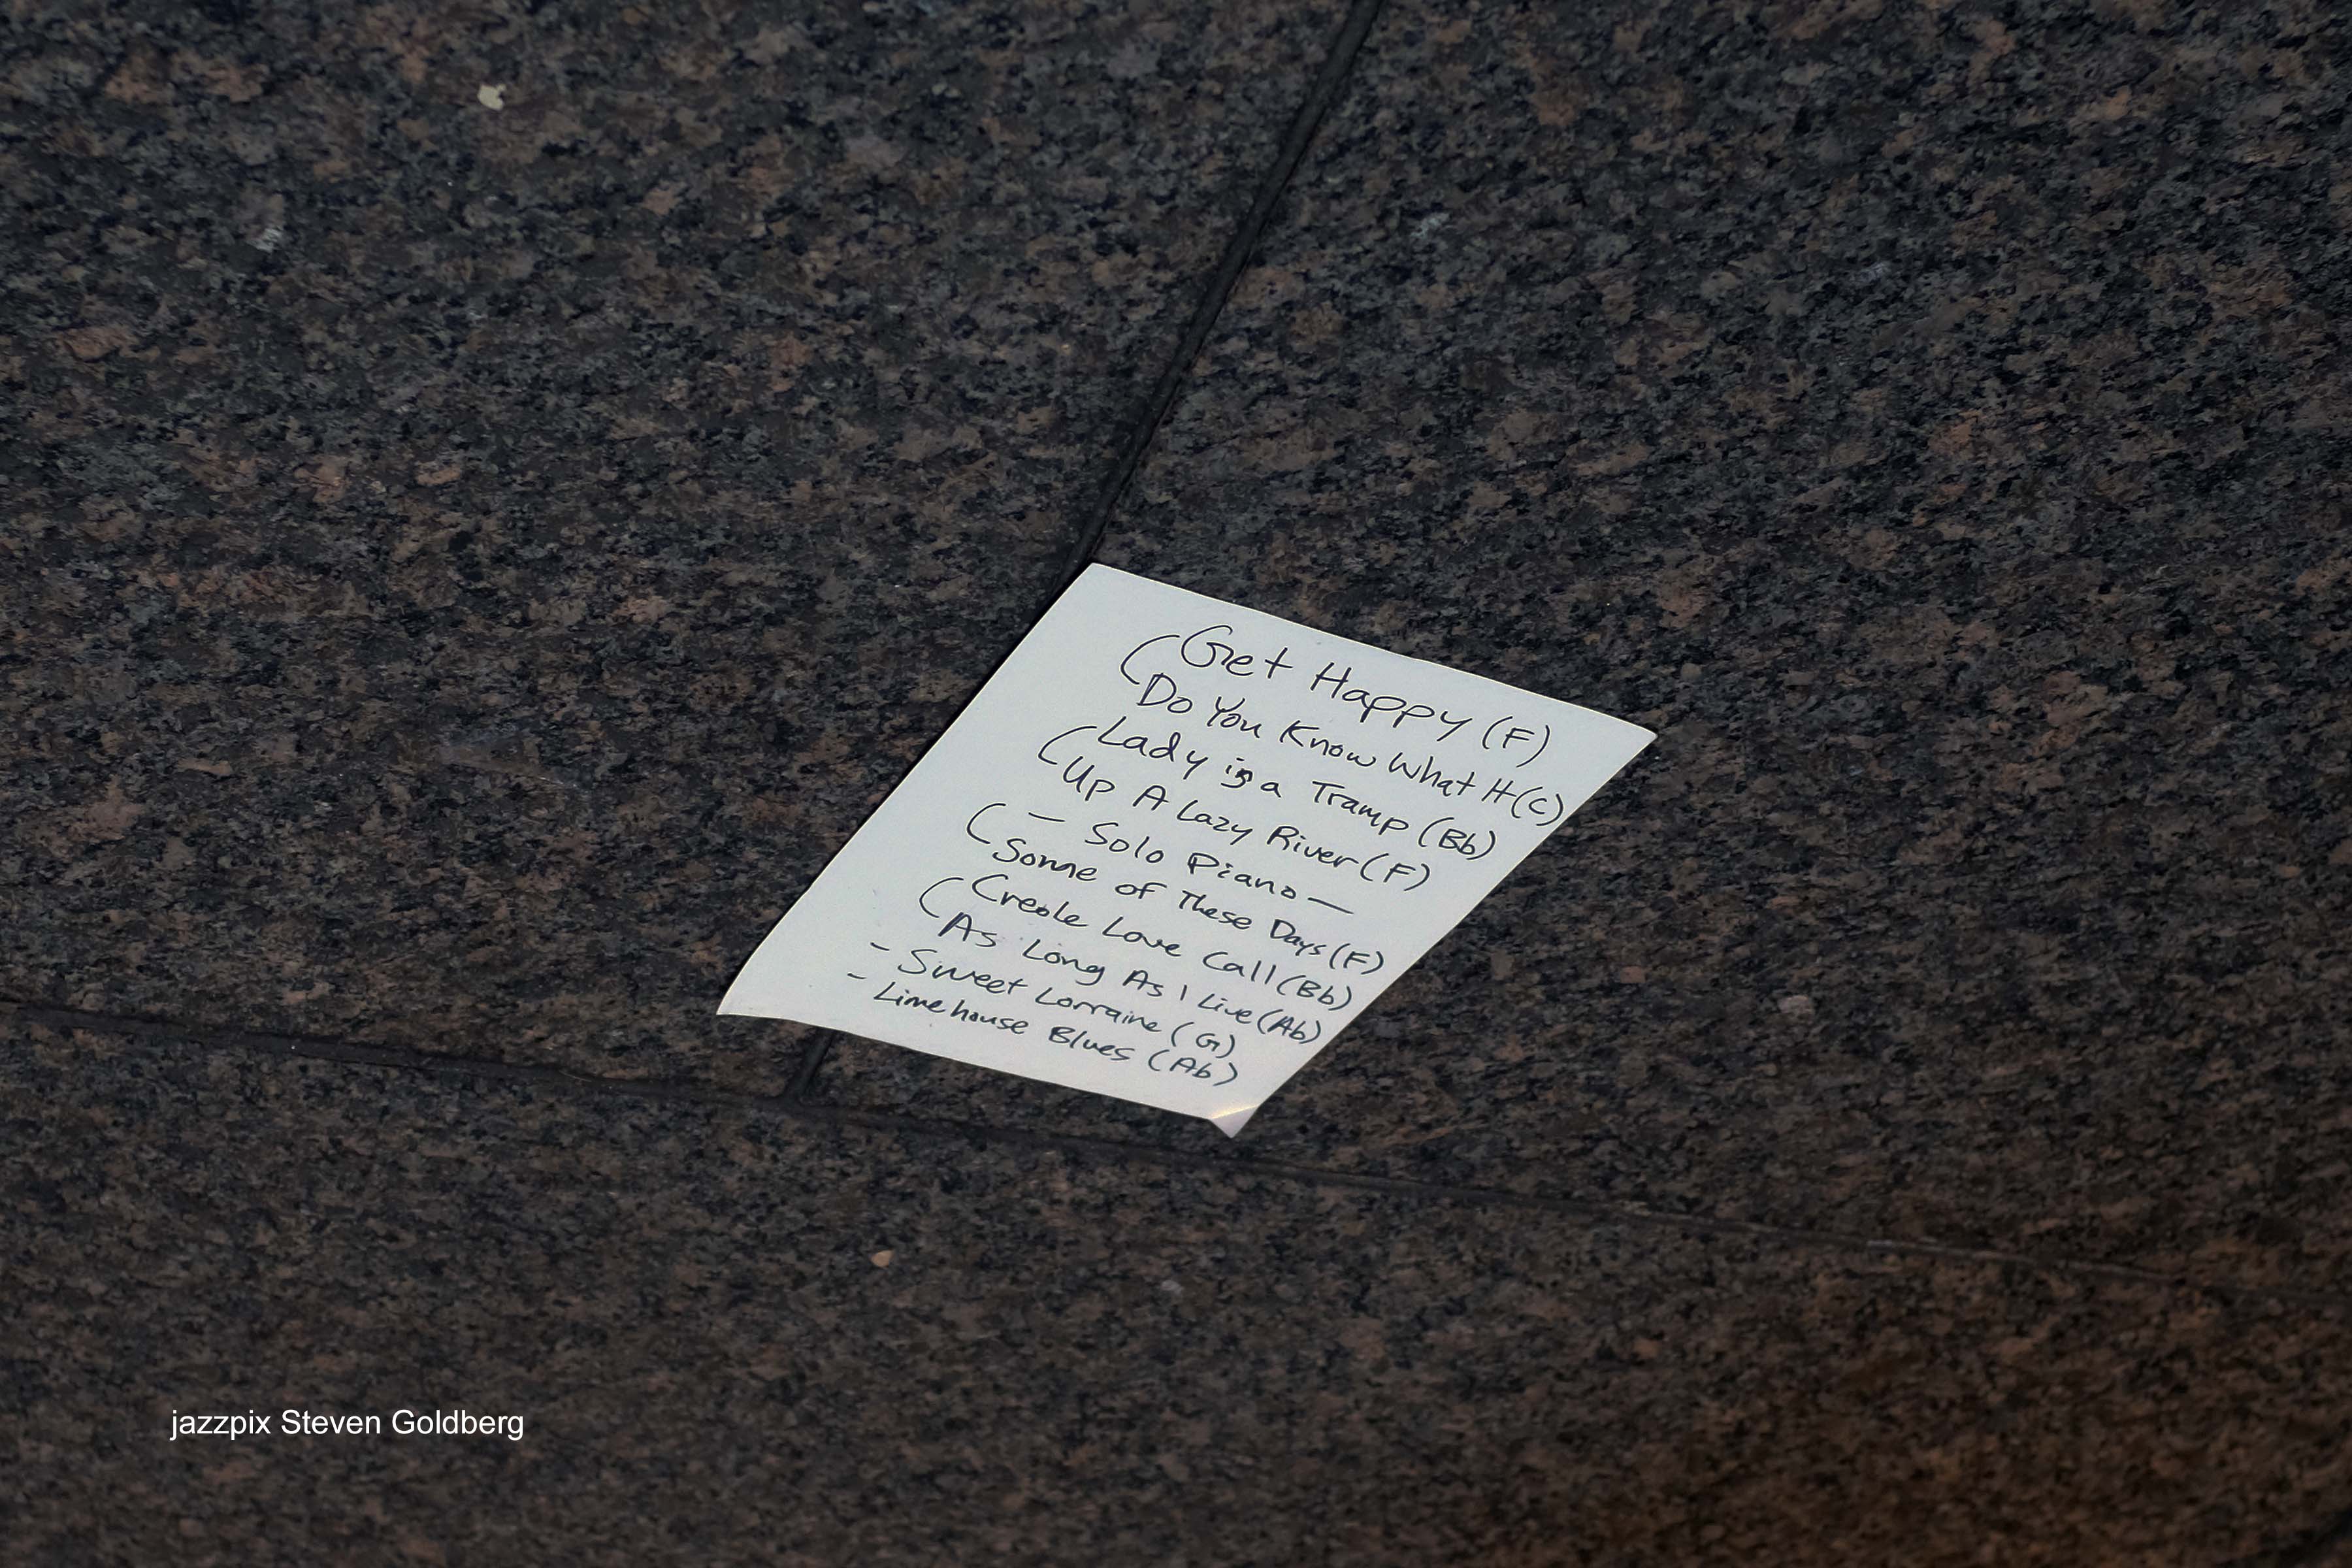 Get Happy (F)
Do You Know What It (C)
Lady is a Tramp (Bb)
Up A Lazy River (F)
— Solo Piano —
Some of These Days (F)
Creole Love Call (Bb)
As Long As I Live (Ab)
- Sweet Lorraine (G)
- Limehouse Blues (Ab)
jazzpix Steven Goldberg